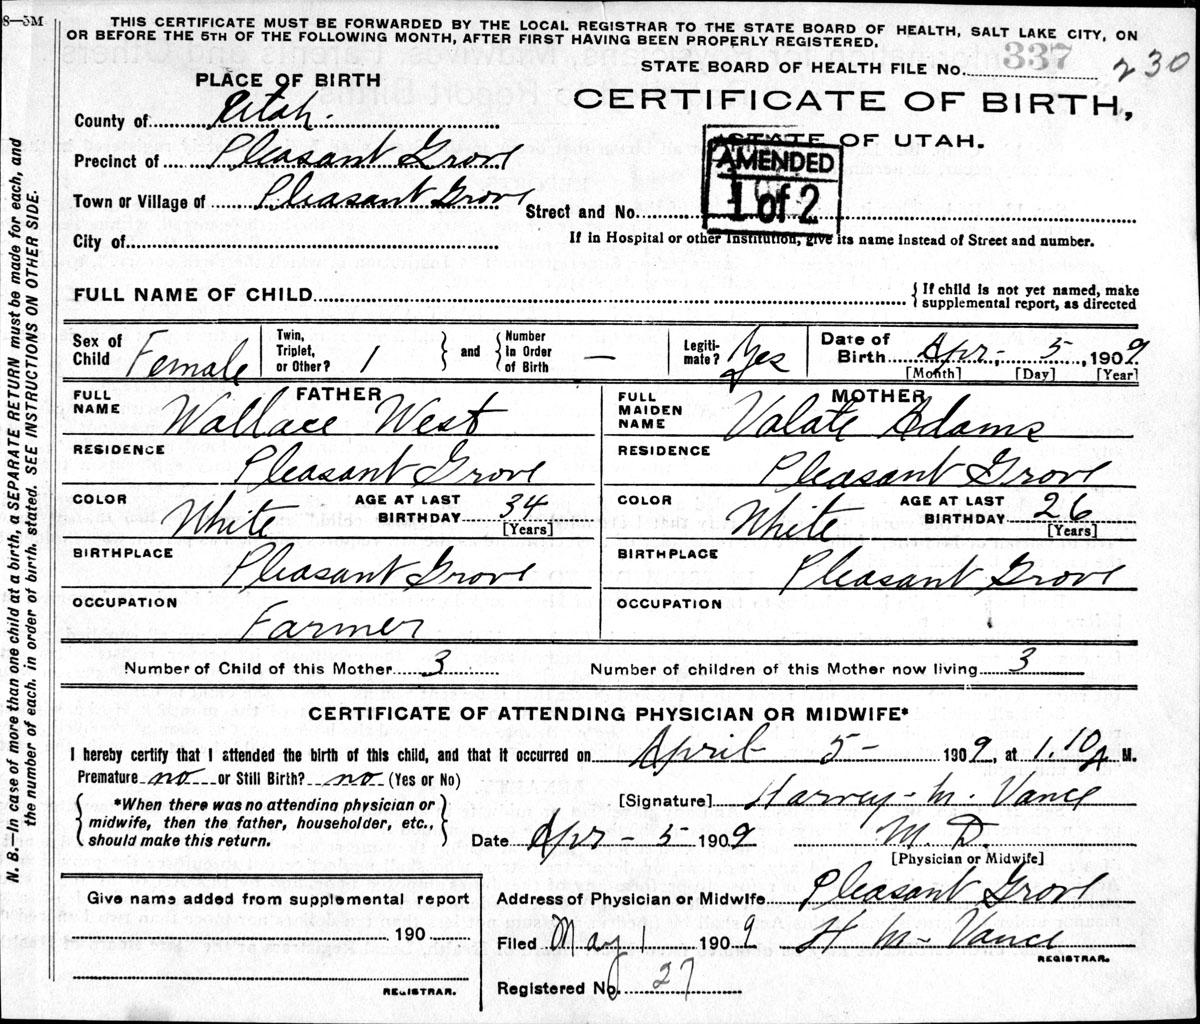 8—5M
THIS CERTIFICATE MUST BE FORWARDED BY THE LOCAL REGISTRAR TO THE STATE BOARD OF HEALTH, SALT LAKE CITY, ON
OR BEFORE THE 5TH OF THE FOLLOWING MONTH, AFTER FIRST HAVING BEEN PROPERLY REGISTERED.
STATE BOARD OF HEALTH FILE No. 337 230
PLACE OF BIRTH
CERTIFICATE OF BIRTH,
STATE OF UTAH.
AMENDED
1 of 2
County of Utah.
Precinct of Pleasant Grove
Town or Village of Pleasant Grove
Street and No.
City of
If in Hospital or other Institution, give its name instead of Street and number.
FULL NAME OF CHILD { If child is not yet named, make
supplemental report, as directed
Sex of Child Female
Twin, Triplet, or Other? 1 } and { Number In Order of Birth —
Legiti-mate? Yes
Date of Birth Apr. 5 1909
[Month] [Day] [Year]
FATHER
FULL NAME Wallace West
RESIDENCE Pleasant Grove
COLOR White AGE AT LAST BIRTHDAY 34
[Years]
BIRTHPLACE Pleasant Grove
OCCUPATION Farmer
MOTHER
FULL MAIDEN NAME Valate Adams
RESIDENCE Pleasant Grove
COLOR White AGE AT LAST BIRTHDAY 26
[Years]
BIRTHPLACE Pleasant Grove
OCCUPATION
Number of Child of this Mother 3 Number of children of this Mother now living 3
CERTIFICATE OF ATTENDING PHYSICIAN OR MIDWIFE*
I hereby certify that I attended the birth of this child, and that it occurred on April 5— 1909, at 1.10 A M.
Premature no or Still Birth? no (Yes or No)
{ *When there was no attending physician or
midwife, then the father, householder, etc.,
should make this return. }
[Signature] Harvey M. Vance
Date Apr 5 1909 M. D.
[Physician or Midwife]
Give name added from supplemental report
190
REGISTRAR.
Address of Physician or Midwife Pleasant Grove
Filed May 1 1909 H M Vance
REGISTRAR.
Registered No. 27
N. B.—In case of more than one child at a birth, a SEPARATE RETURN must be made for each, and
the number of each, in order of birth, stated. SEE INSTRUCTIONS ON OTHER SIDE.